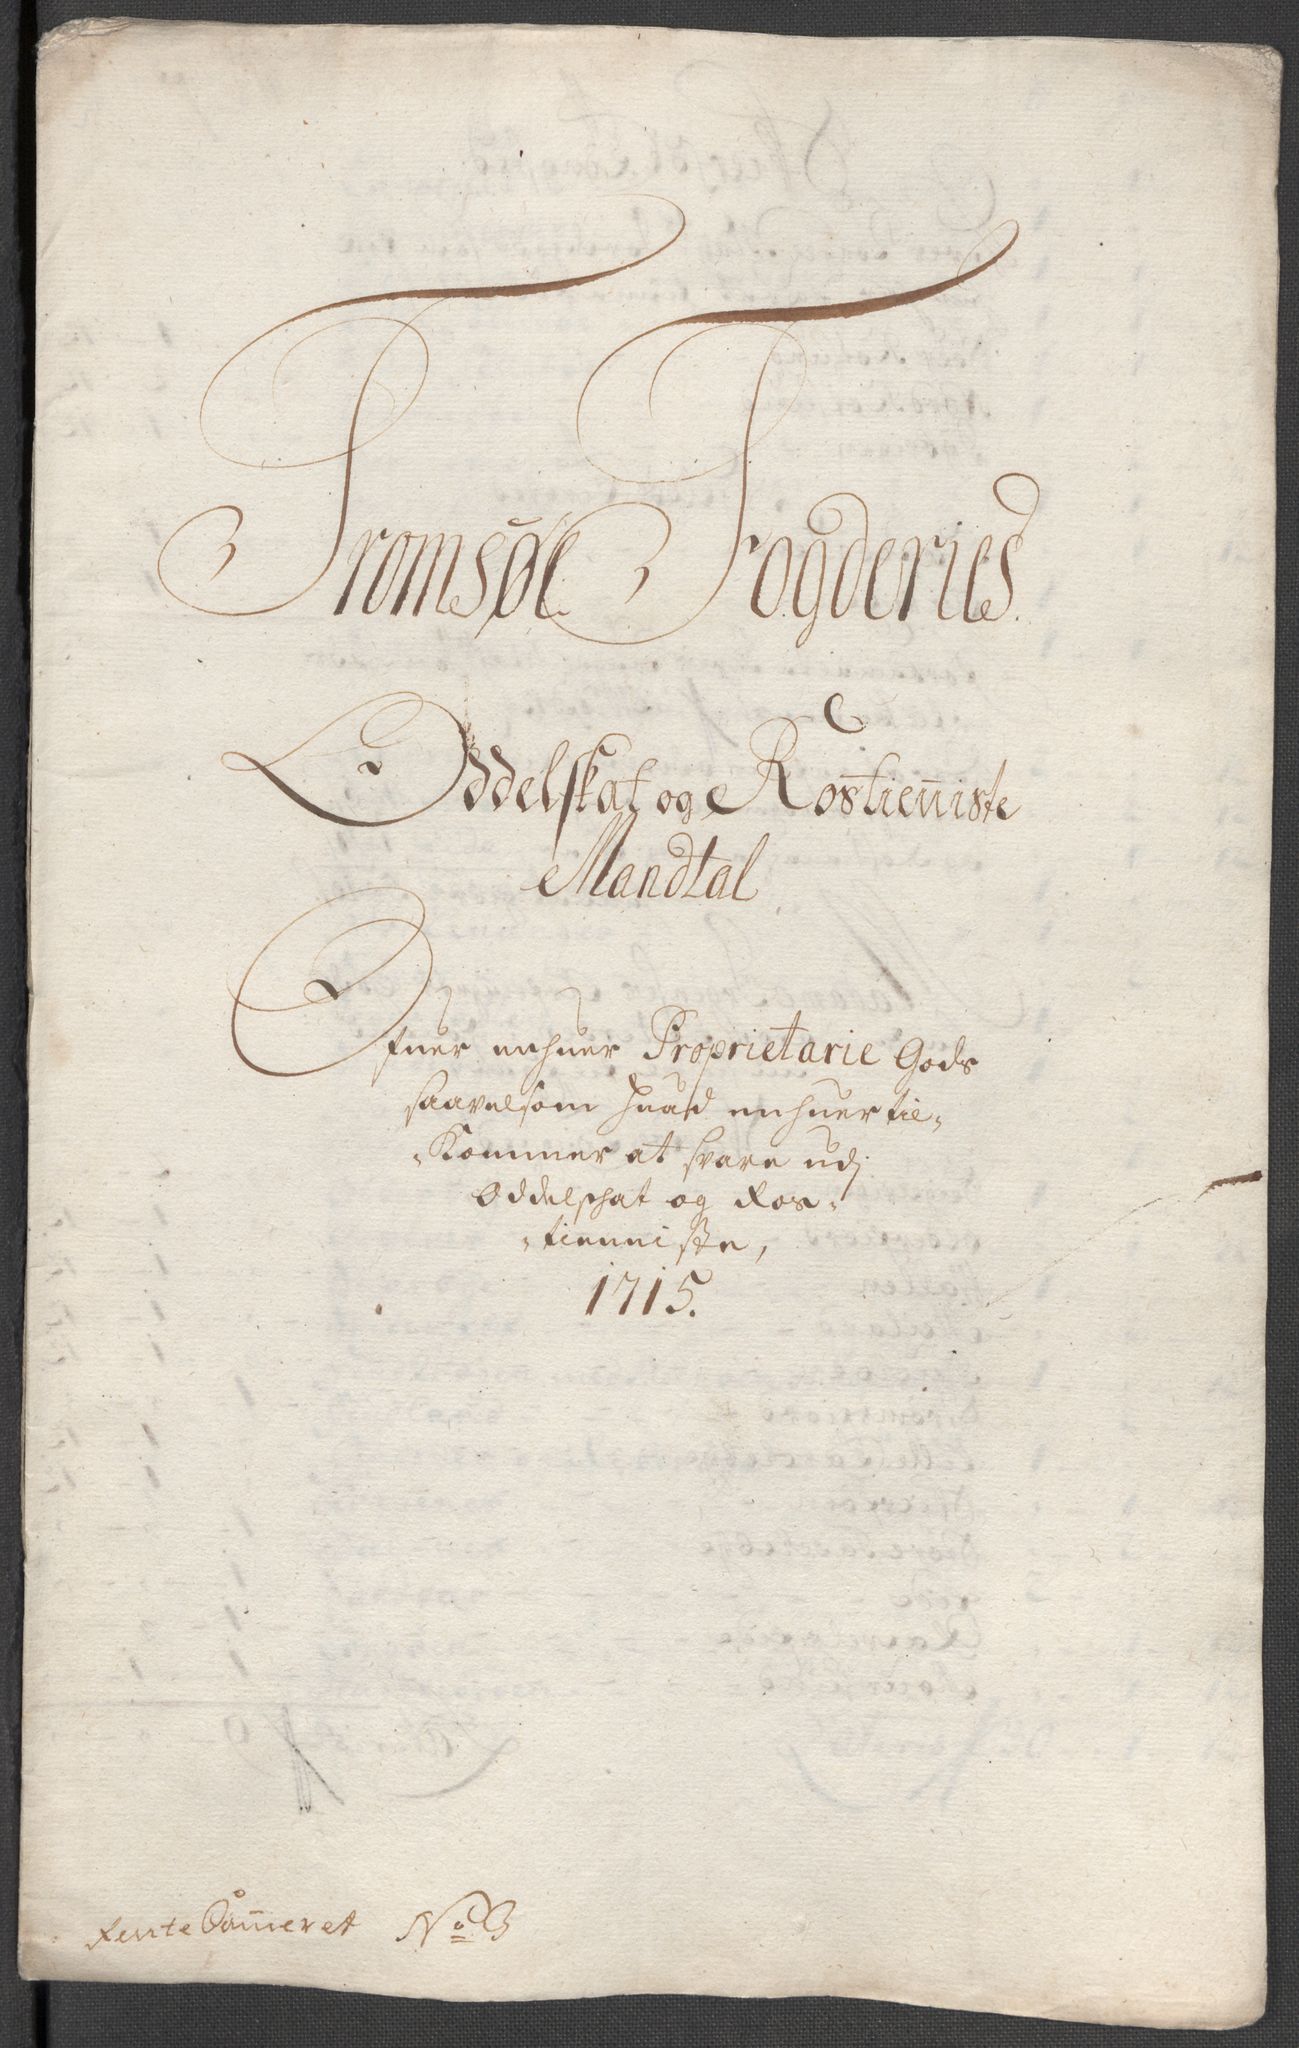 Tromsøe Fogderies
Oddelskat og Rostieniste
Mandtal
Ofuer enhuer Proprietarie Gods
saavelsom huad enhuer til-
-Kommer at svare udj
Oddelschat og Ros-
-tienniste,
1715.
RenteCammeret No 3